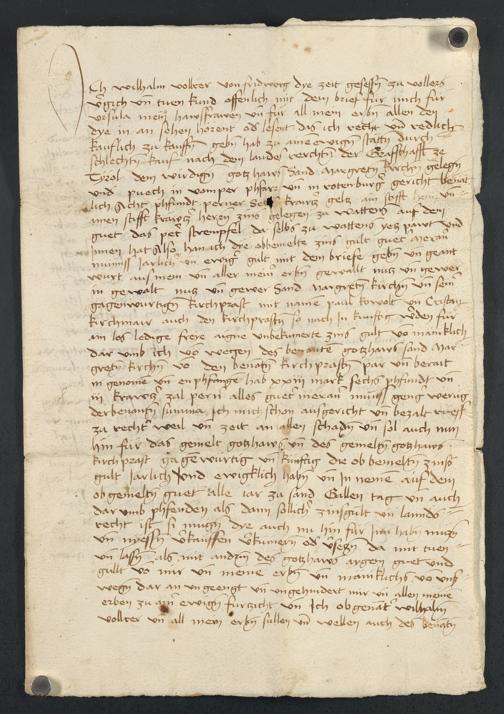 Ich wilhalm volrer von fridwerg dye zeit gesessn zu vollers
vgich vn tuen kund offenlich mit dem brief fur mich fur
vrsula mein hawsfrawen vn fur all mein erbn allen den
dye in an sehen horent od lesent das ich recht vn redlich
kauflich zu kauffn gebn hab zu aine ewign statn durch
schlechtn kauf nach den landes rechtn der Graffschafft ze
Tyrol dem wirdign gotzhaws Sand Margretn kirchn gelegn
und puech in vomper pharr vn in rotenburg gericht
lich phfundt perner krawtz gelz am stifft
inen stifft krawtz herrn zins gelegen zu wattens auf dem
guet das pet strempfel da selbs zu wattens yez pawt und
innen hat also hanach dye obbemelte zins gult guet meran
muniss Jarlich vn ewig gult mit den briefe gebn vn geant
wurt aus mein vn aller mein erbn gewalt nutz vn gewer
in gewalt nutz vn gewer Sand margretn kirchn vn sein
gagenwurtign kirchprast mit name paul vn Cristan
kirchmair auch den kirchprastn so nach in kunftig wden fur
ain los ledige freye aigne unbekumerte zins gult vo manklich
dar umb ich vo wegen des benante gotzhaws sand mar
gretn kirchn vo den benatn kirchprastn par vn berait
in genome vn enphfange hab xxiii mark sechs phfundt vn
iii krawtz zal pern alles guet meran muniss geng werug
derbenantn suma ich mich schon ausgericht vn bezalt
zu recht weil vn zeit an allen schadn vn sol auch nun
hin fur das gemelt gotzhaws vn des gemeltn gotzhaws
kirchprast gagewurtig vn kunftig die obbemeltn zins
gult Jarlich vnd ewigklich habn vn In neme auf dem
obgemeltn guet alle iar zu sand Gallen tag vn auch
dar umb phfenden als dann sollich zinsgult vn lannds
recht ist si mugn dye auch nu hin fur Inn habn nutzn
vn nyessn vkauffen vkumern od vsetzn da mit tuen
vn lassn als mit andrn des gotzhaws aygen guet und
gullt vo mir vn meine erbn vn manklichs vo uns
wegn dar an ungeengt vn ungehindert mir vn allen meine
erben zu ain ewign furzicht vn Ich obgenat wilhalm
volrer vn all mein erbn sullen vn wellen auch des benatn